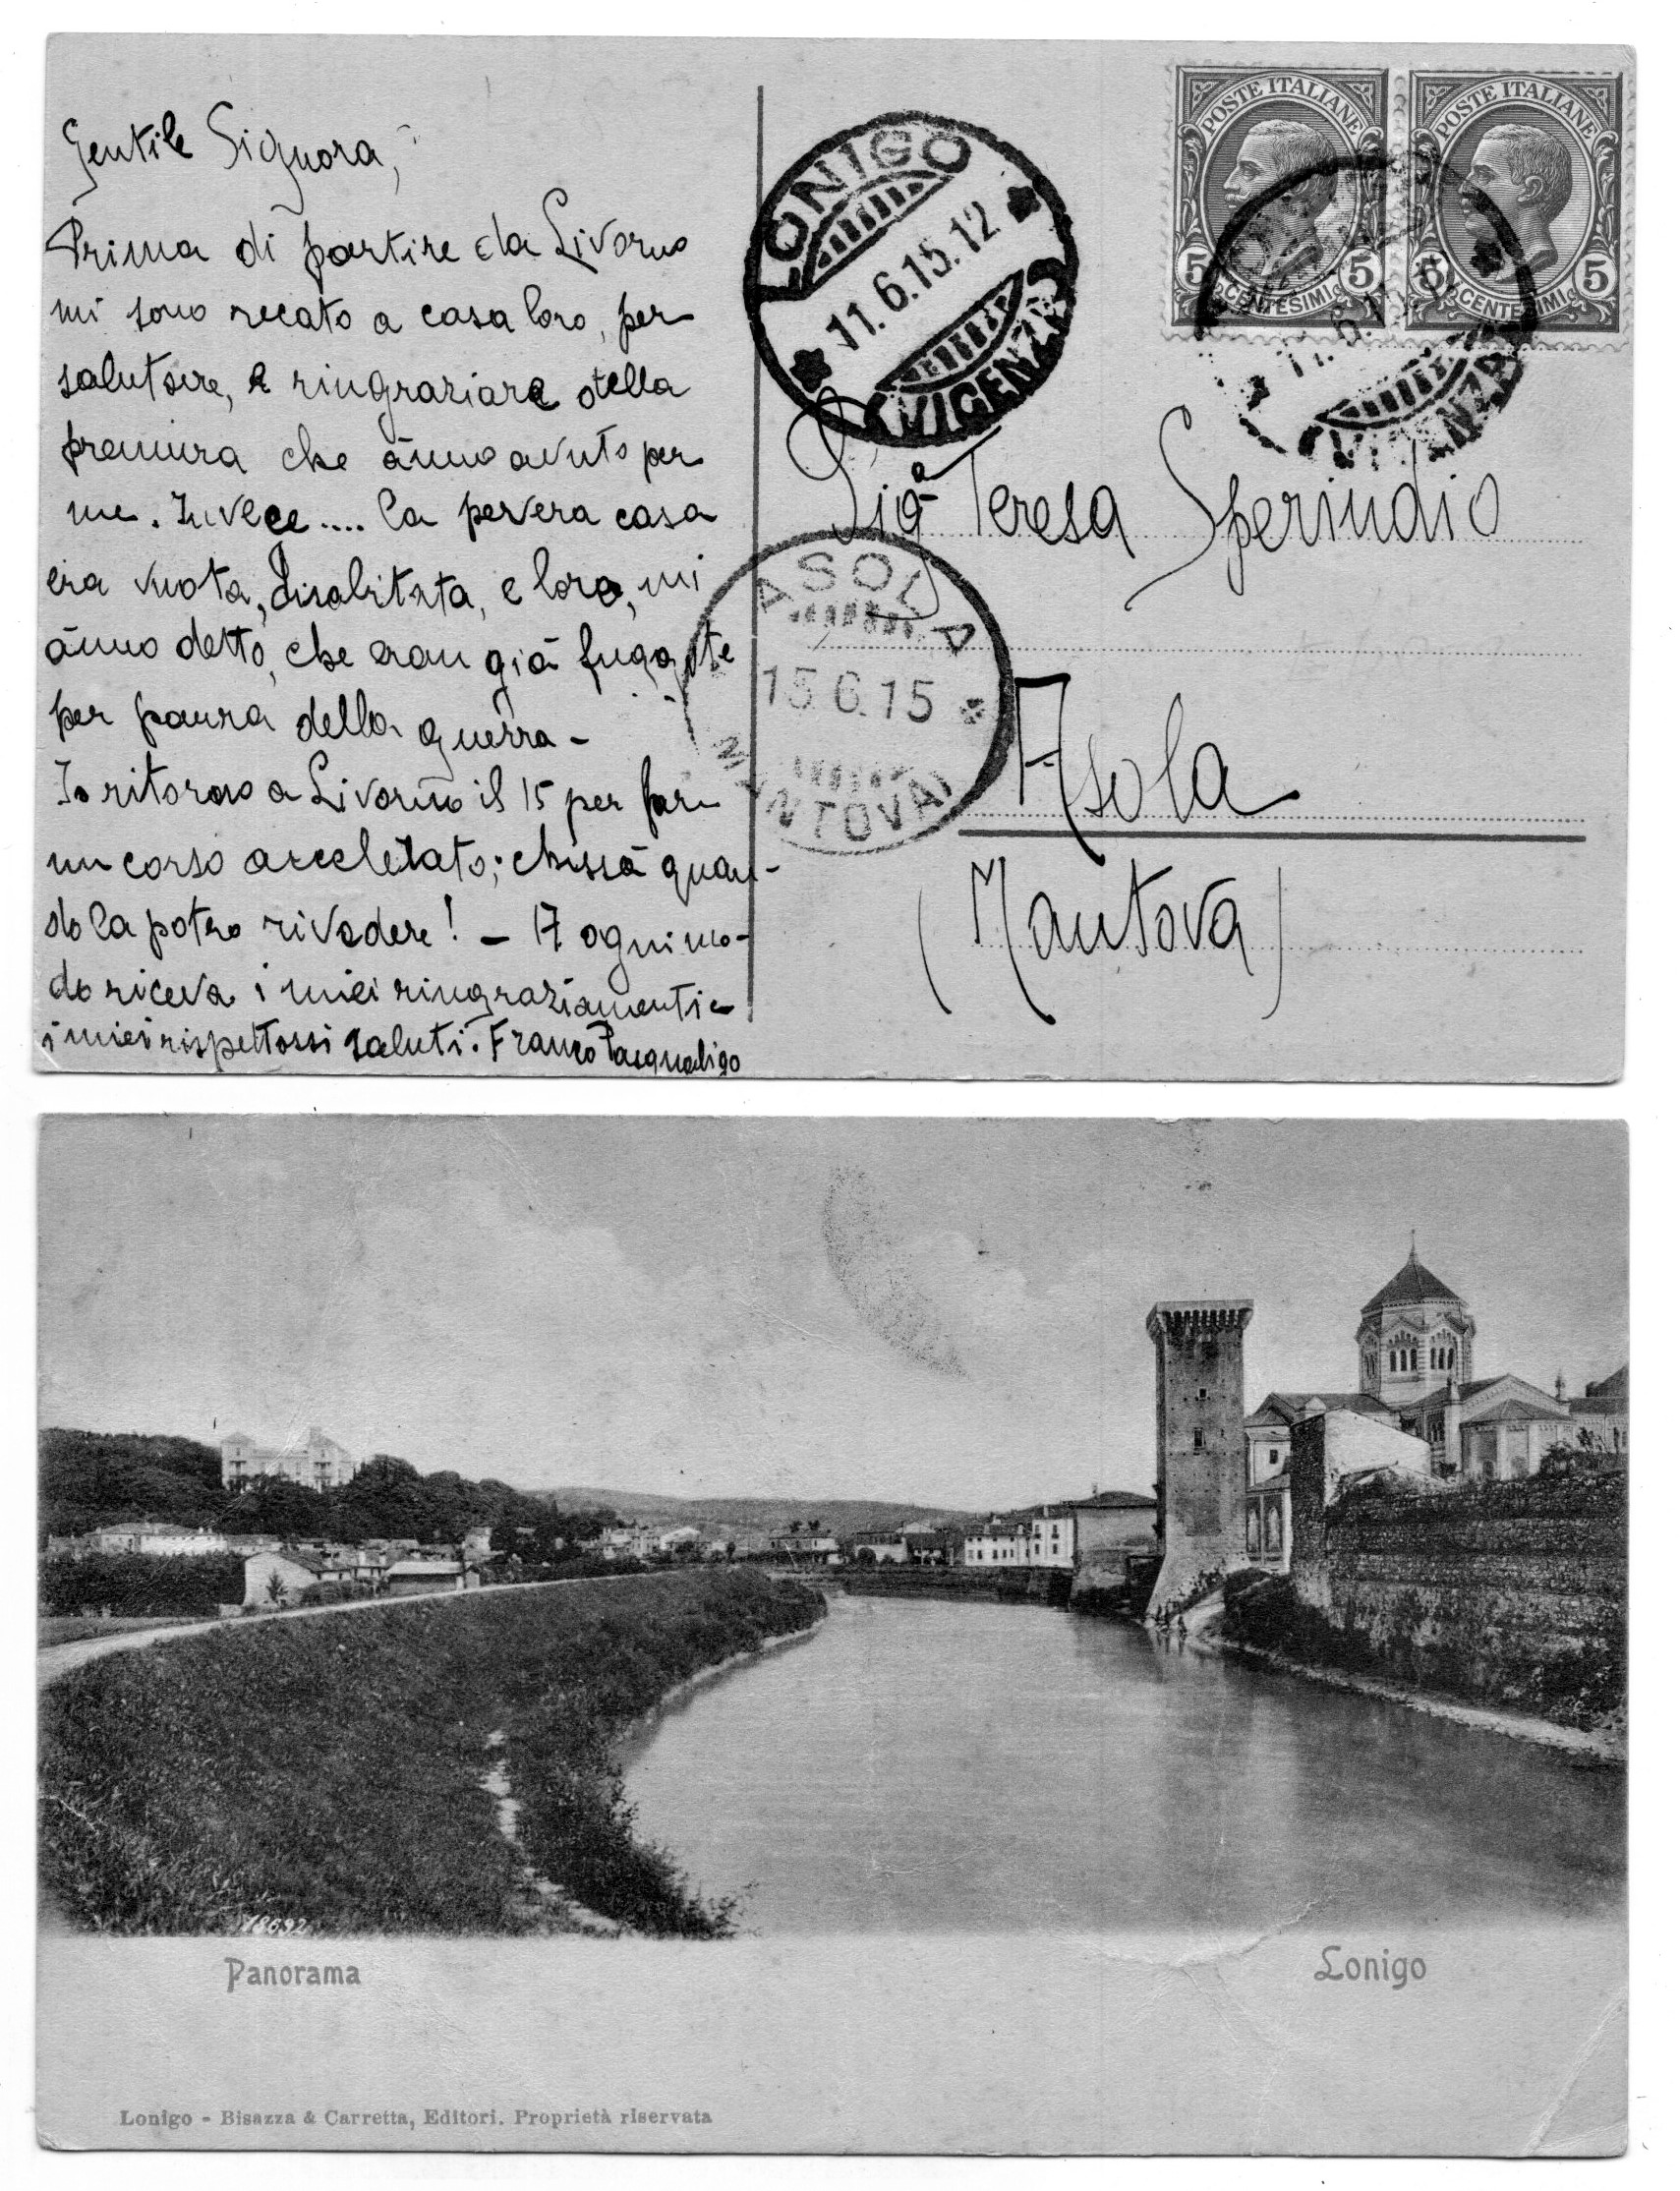 Gentile Signora,
Prima di partire da Livorno
mi sono recato a casa loro, per
salutare, e ringraziare della
premura che ànno avuto per
me. Invece.... la povera casa
era vuota, disabitata, e loro, mi
ànno detto, che eran già fuggite
per paura della guerra -
Io ritorno a Livorno il 15 per far
un corso acceletato; chissà quan-
do la potrò rivedere! - A ogni mo-
do riceva i miei ringraziamenti e
i miei rispettossi saluti. Franco Pasqualigo
LONIGO
11.6.15.12
(VICENZA)
POSTE ITALIANE
5 CENTESIMI 5
POSTE ITALIANE
5 CENTESIMI 5
(VICENZA)
Sigª Teresa Sperindio
ASOLA
15.6.15
MANTOVA
Asola
(Mantova)
18692
Panorama
Lonigo
Lonigo - Bisazza & Carretta, Editori. Proprietà riservata